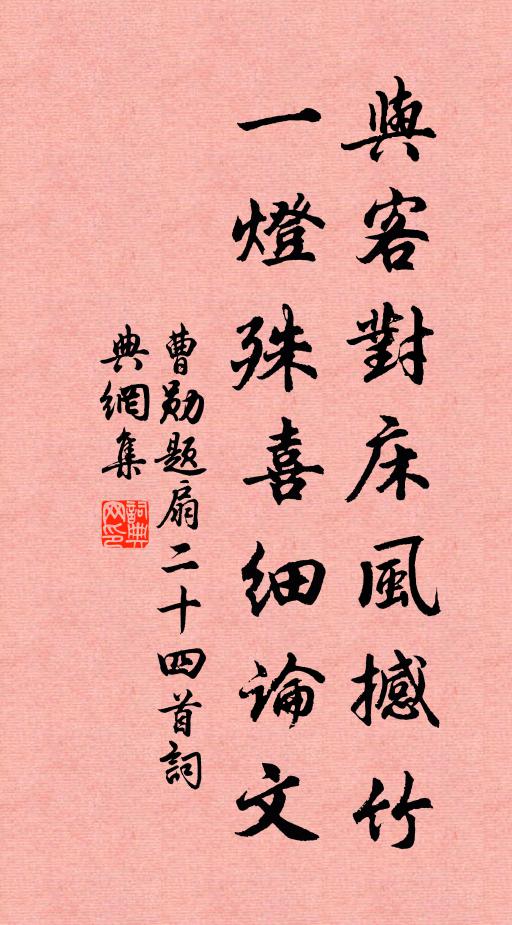 與客對床風撼竹
一燈殊喜細論文
曹勛題扇二十四首詞
典網集
詞典網印